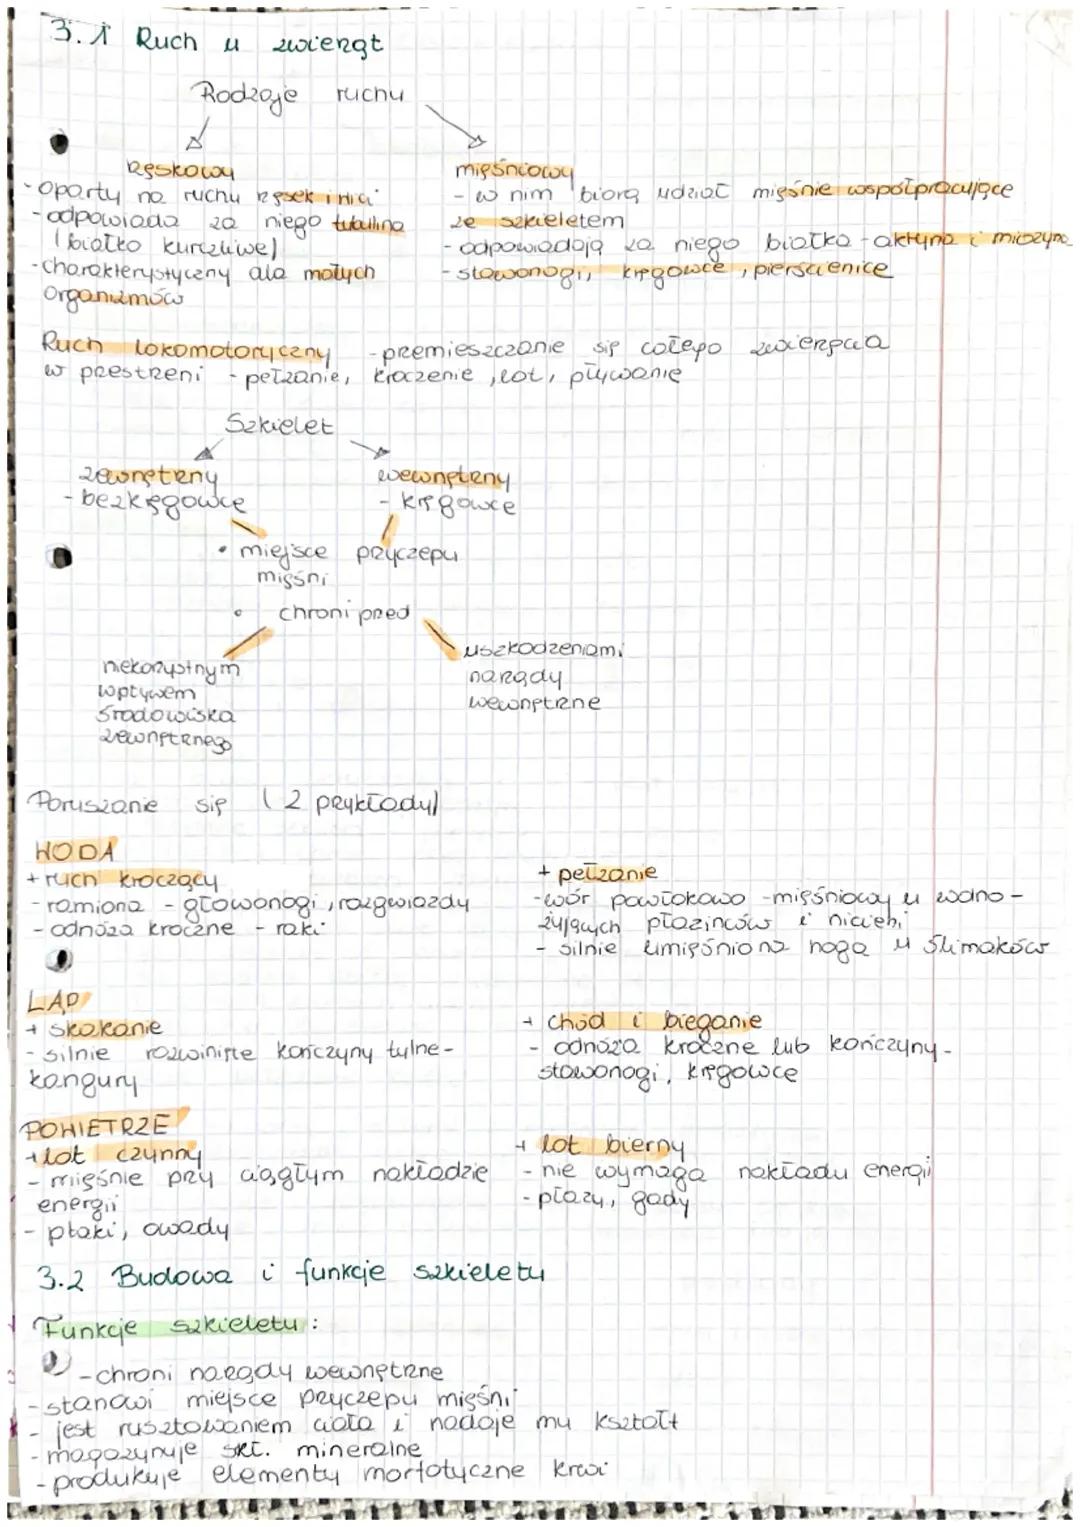 3.1 Ruch u zwierząt
Rodzaje ruchu
rzęskowy
- oparty na ruchu rzęsek i nici
- odpowiada za niego tubulina
(białko kurczliwe)
- charakterystyczny dla małych
organizmów
mięśniowy
- w nim biorą udział mięśnie współpracujące
ze szkieletem
- odpowiadają za niego białka - aktyna i miozyna
- stawonogi, kręgowce, pierścienice
Ruch lokomotoryczny - przemieszczanie się całego zwierzęcia
w przestrzeni - pełzanie, kroczenie, lot, pływanie
Szkielet
zewnętrzny
- bezkręgowce
wewnętrzny
- kręgowce
• miejsce przyczepu
mięśni
• chroni przed
niekorzystnym
wpływem
środowiska
zewnętrznego
uszkodzeniami
narządy
wewnętrzne
Poruszanie się (2 przykłady)
WODA
+ ruch kroczący
- ramiona - głowonogi, rozgwiazdy
- odnóża kroczne - raki
+ pełzanie
- wór powłokowo - mięśniowy u wodno -
żyjących płazińców i nicieni
- silnie umięśniona noga u ślimaków
LĄD
+ skakanie
- silnie rozwinięte kończyny tylne -
kangury
+ chód i bieganie
- odnóża kroczne lub kończyny -
stawonogi, kręgowce
POWIETRZE
+ lot czynny
- mięśnie przy ciągłym nakładzie
energii
- ptaki, owady
+ lot bierny
- nie wymaga nakładu energii
- płazy, gady
3.2 Budowa i funkcje szkieletu
Funkcje szkieletu :
- chroni narządy wewnętrzne
- stanowi miejsce przyczepu mięśni
- jest rusztowaniem ciała i nadaje mu kształt
- magazynuje skł. mineralne
- produkuje elementy morfotyczne krwi